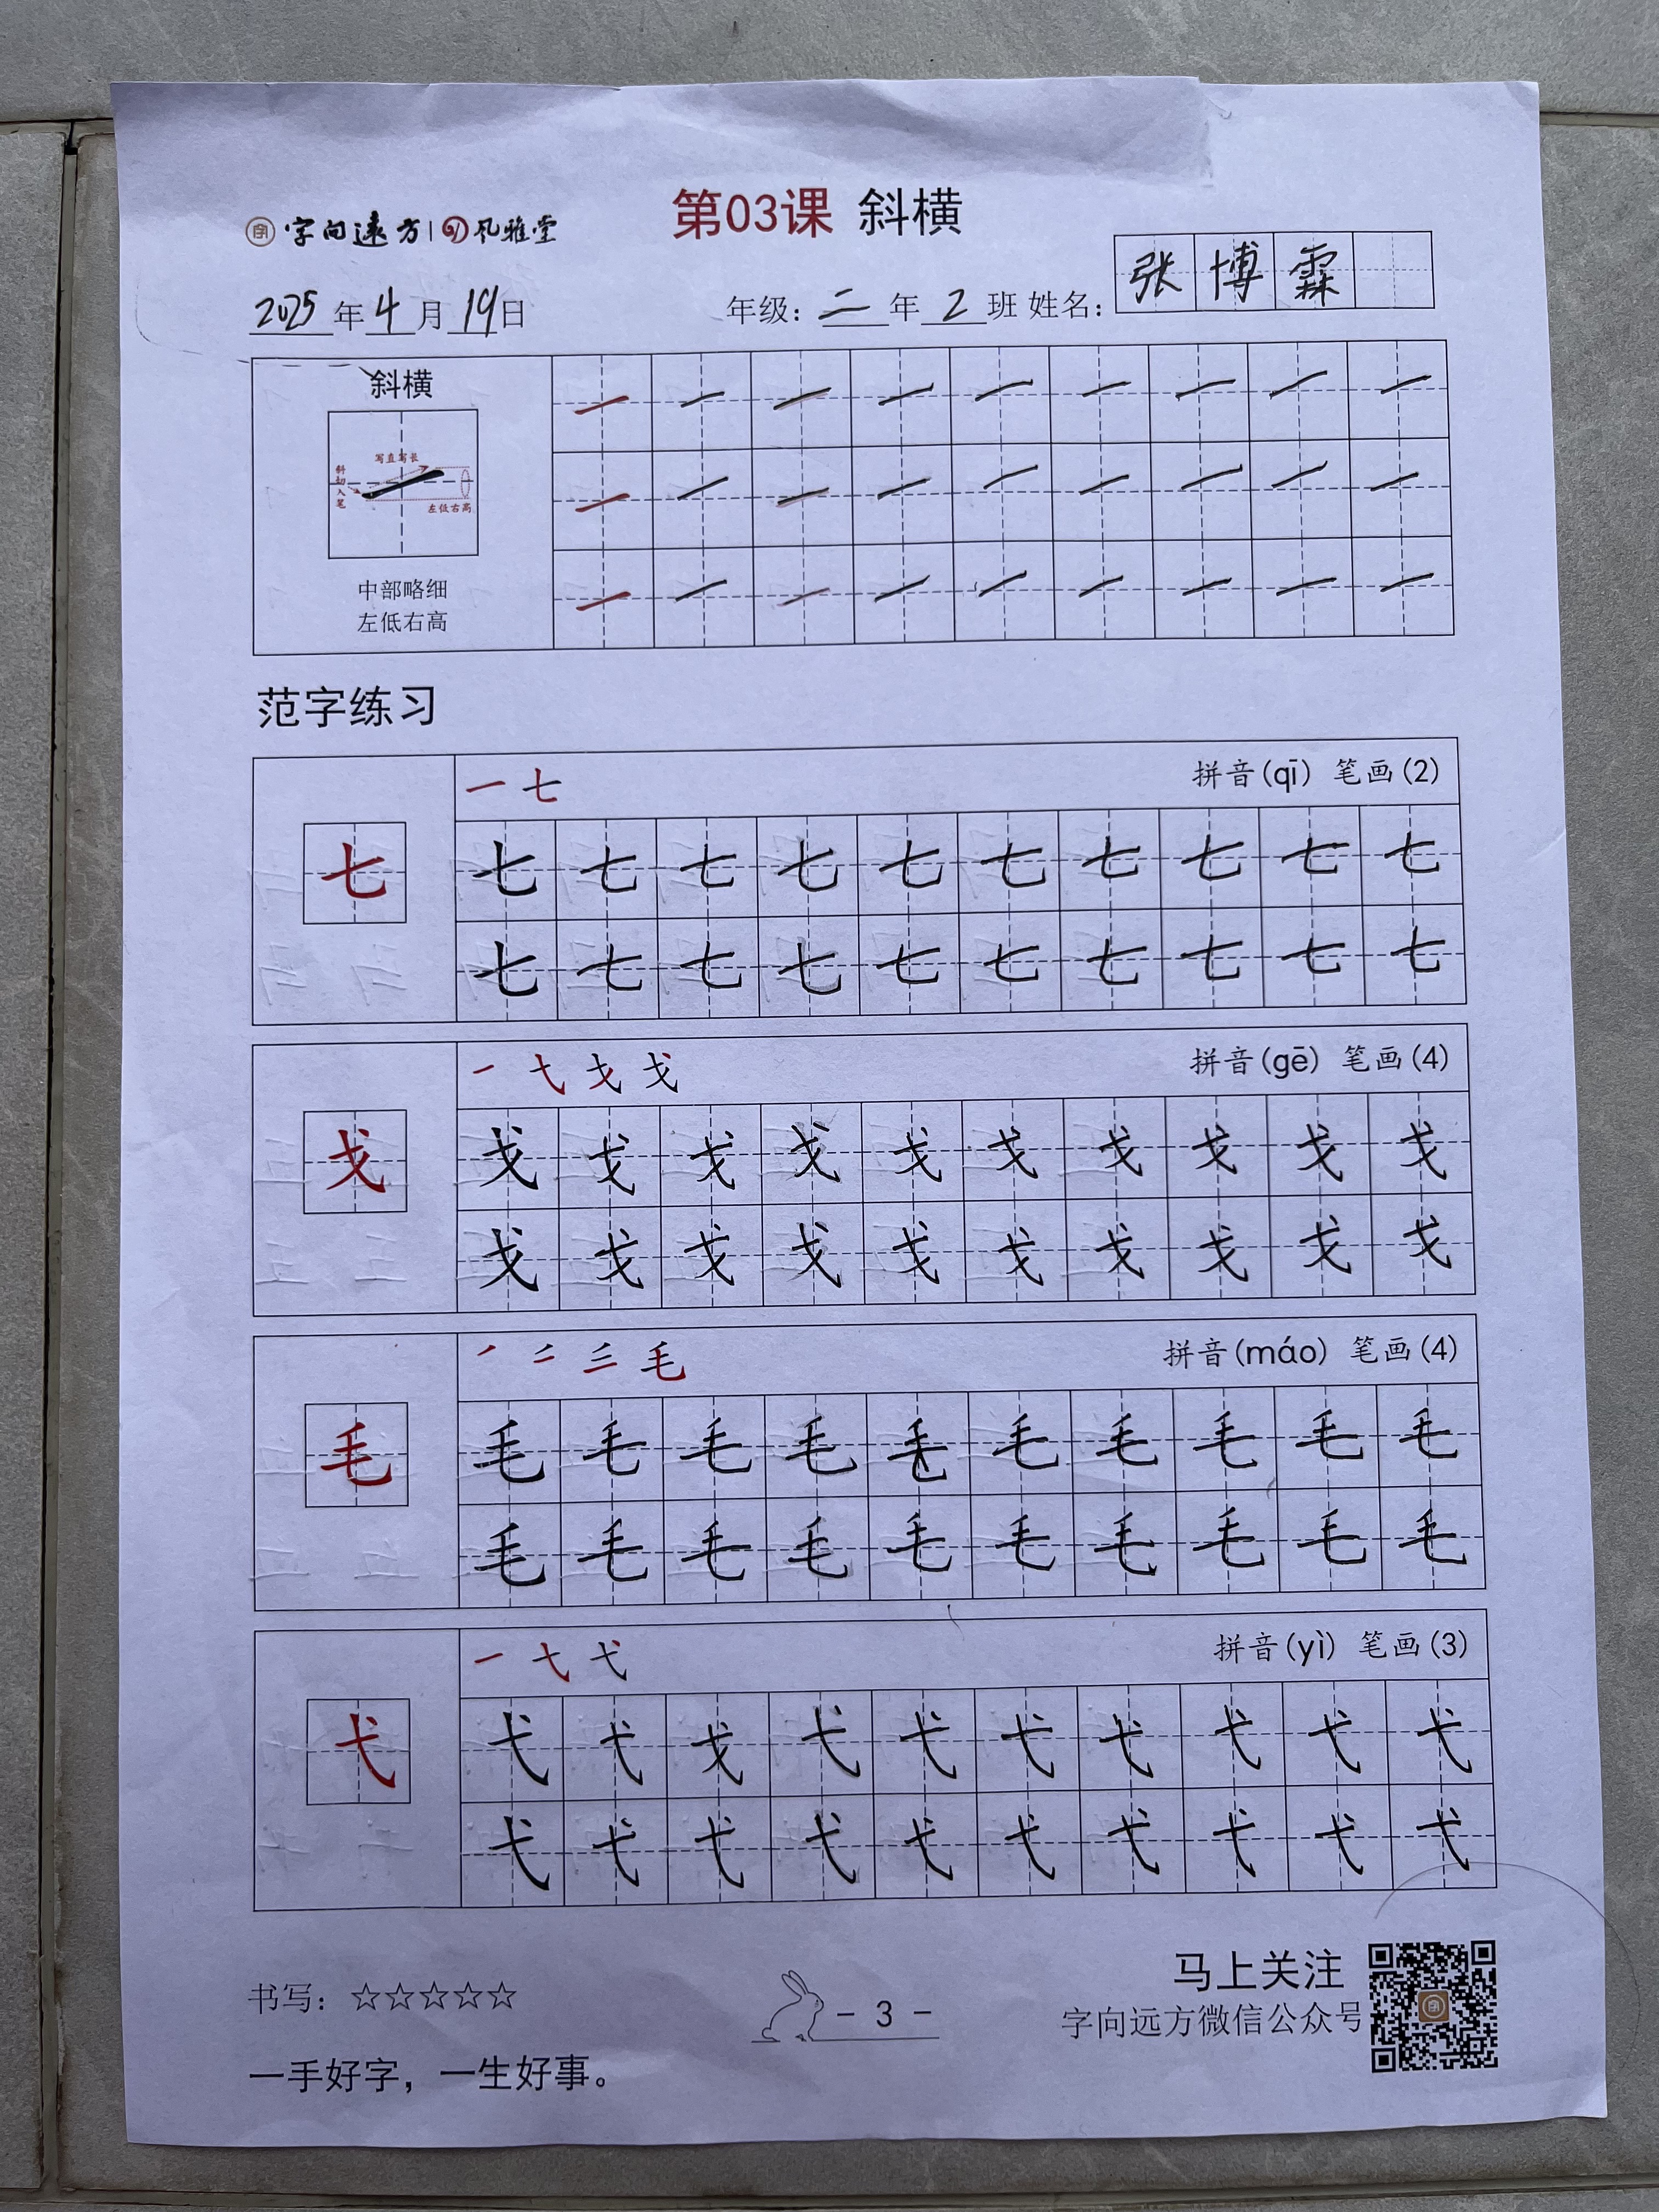 字向远方 | 风雅堂
第03课 斜横
2025年4月19日 年级：二年2班 姓名：张博霖
斜横
写直写长
斜切入笔
左低右高
中部略细
左低右高
范字练习
一 七 拼音(qī) 笔画(2)
七 七 七 七 七 七 七 七 七 七 七
七 七 七 七 七 七 七 七 七 七
戈 拼音(gē) 笔画(4)
戈 戈 戈 戈 戈 戈 戈 戈 戈 戈 戈
戈 戈 戈 戈 戈 戈 戈 戈 戈 戈
毛 拼音(máo) 笔画(4)
毛 毛 毛 毛 毛 毛 毛 毛 毛 毛 毛
毛 毛 毛 毛 毛 毛 毛 毛 毛 毛
弋 拼音(yì) 笔画(3)
弋 弋 弋 戈 弋 弋 弋 弋 弋 弋 弋
弋 弋 弋 弋 弋 弋 弋 弋 弋 弋
马上关注
书写：☆☆☆☆☆ - 3 - 字向远方微信公众号
一手好字，一生好事。